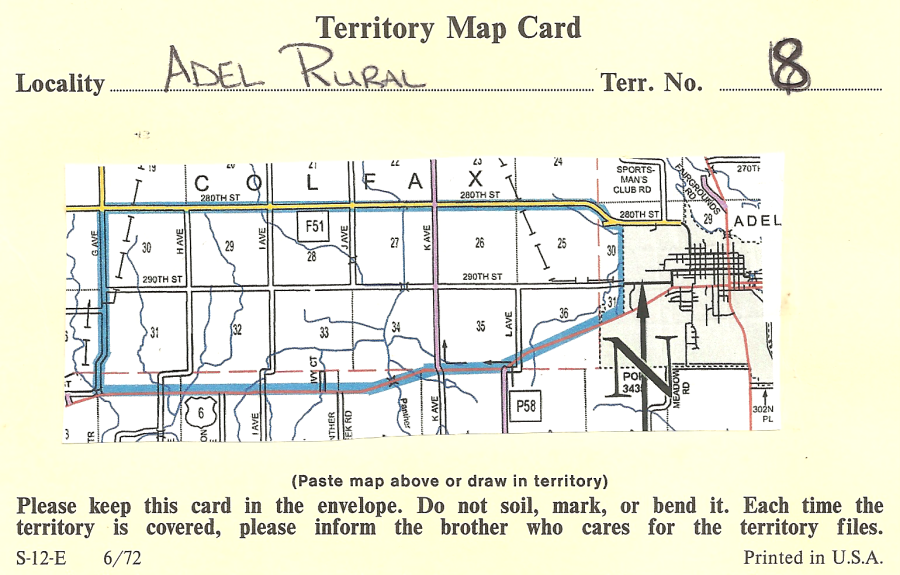 Territory Map Card
Locality ADEL RURAL Terr. No. 8
19 20 21 22 23 24
COLFAX
SPORTS-
MAN'S
CLUB RD
FAIRGROUNDS
RD
270TH
280TH ST
280TH ST
280TH ST
29
ADEL
G AVE
30
H AVE
29
I AVE
F51
28
J AVE
27
K AVE
26
25
30
290TH ST
290TH ST
31
32
33
34
35
L AVE
36
31
IVY CT
6
I AVE
K AVE
P58
N
MEADOW
RD
302N
PL
(Paste map above or draw in territory)
Please keep this card in the envelope. Do not soil, mark, or bend it. Each time the
territory is covered, please inform the brother who cares for the territory files.
S-12-E 6/72 Printed in U.S.A.